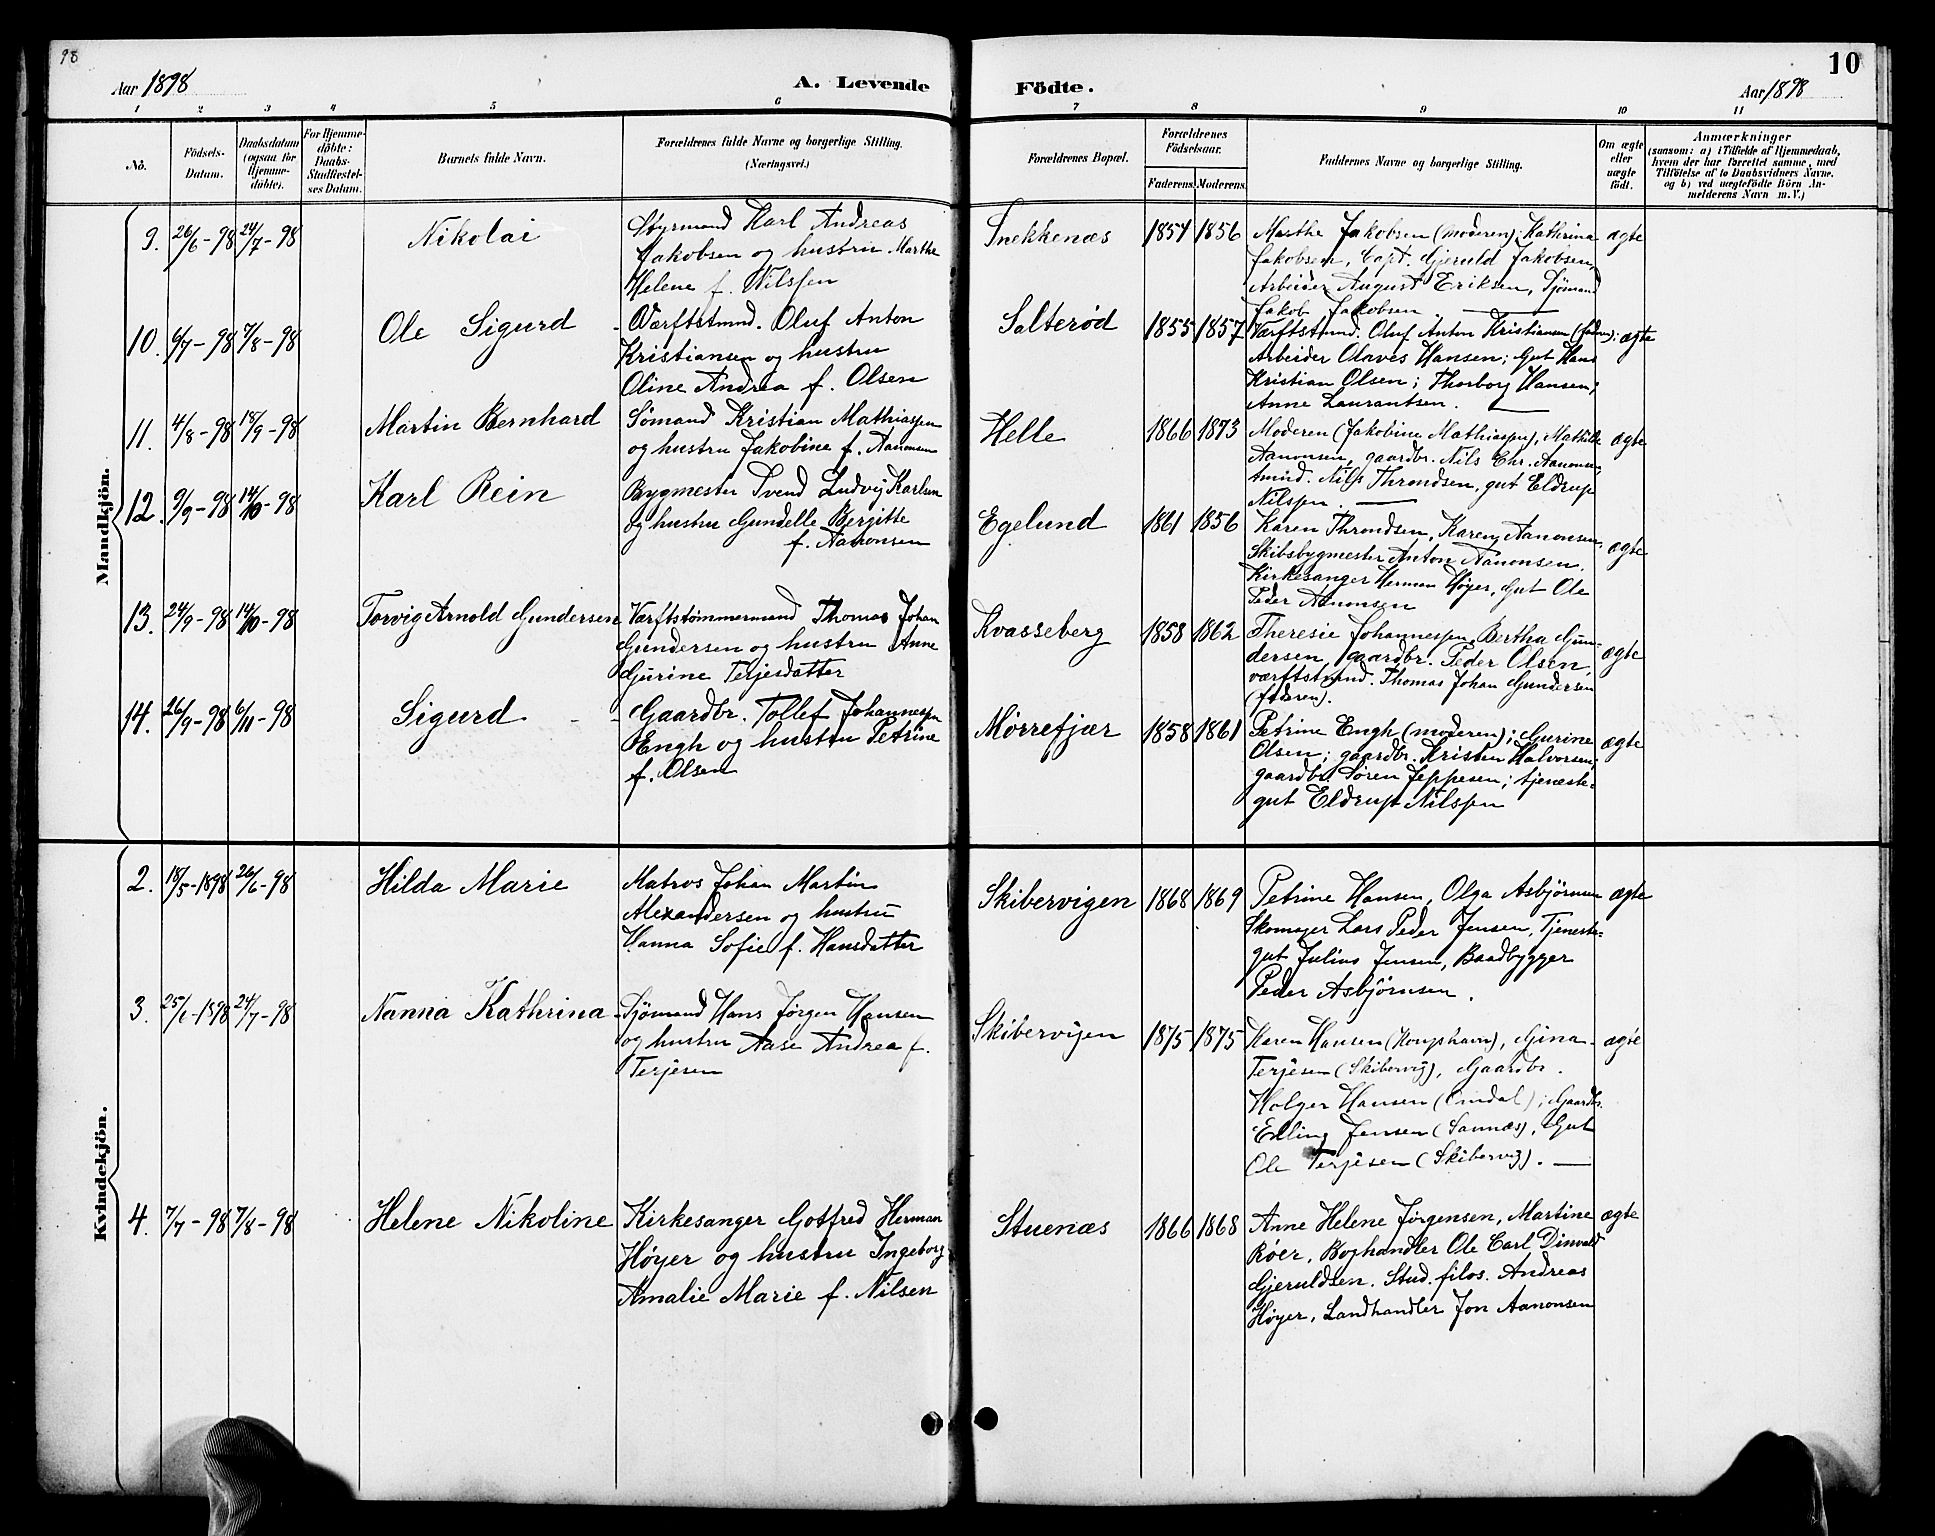 98
10
Aar 1898
A. Levende
Födte.
Aar 1898
1 2 3 4 5 6 7 8 9 10 11
No.
Födsels-
Datum.
Daabsdatum
(ogsaa for
Hjemme-
döbte).
For Hjemme-
döbte:
Daabs-
Stadfæstel-
ses Datum.
Barnets fulde Navn.
Forældrenes fulde Navne og borgerlige Stilling.
(Næringsvei.)
Forældrenes Bopæl.
Forældrenes
Födselsaar.
Faderens. Moderens.
Faddernes Navne og borgerlige Stilling.
Om ægte
eller
uægte
födt.
Anmærkninger
(saasom: a) i Tilfælde af Hjemmedaab,
hvem der har forrettet samme, med
Tilföielse af to Daabsvidners Navne.
og b) ved uægtefödte Börn An-
melderens Navn m.V.)
Mandkjön.
9. 26/6-98 24/7-98
Nikolai
Styrmand Karl Andreas
Jakobsen og hustru Marthe
Helene f. Nilssen
Snekkenæs
1854 1856
Marthe Jakobsen (moderen); Kathrina
Jakobsen, Capt. Gjeruld Jakobsen,
Arbeider August Eriksen, Sjömand
Jakob Jakobsen
ægte
10. 6/7-98 7/8-98
Ole Sigurd
Værftstmnd. Oluf Anton
Kristiansen og hustru
Oline Andrea f. Olsen
Salterød
1855 1857
Værftstmnd. Oluf Anton Kristiansen (faderen);
Arbeider Olaves Hansen; Gut Hans
Kristian Olsen; Thorborg Hansen;
Anne Laurantsen.
ægte
11. 4/8-98 18/9-98
Martin Bernhard
Sømand Kristian Mathiassen
og hustru Jakobine f. Aanonsen
Helle
1866 1873
Moderen (Jakobine Mathiassen), Mathilde
Aanonsen, gaardbr. Nils Chr. Aanonsen,
tmnd. Nils Throndsen, gut Eldrup
Nilssen.
ægte
12. 9/9-98 14/10-98
Karl Rein
Bygmester Svend Ludvig Karlsen
og hustru Gundelle Bergitte
f. Aanonsen
Egelund
1861 1856
Karen Throndsen, Karen Aanonsen,
Skibsbygmester Anton Aanonsen,
Kirkesanger Herman Høyer, Gut Ole
Peder Aanonsen
ægte
13. 24/9-98 14/10-98
Torvig Arnold Gundersen
Værftstømmermand Thomas Johan
Gundersen og hustru Anne
Gurine Terjesdatter
Kvasseberg
1858 1862
Theresie Johannessen, Bertha Gun-
dersen, gaardbr. Peder Olsen,
værftstmnd. Thomas Johan Gundersen
(faderen).
ægte
14. 26/9-98 6/11-98
Sigurd
Gaardbr. Tollef Johannessen
Engh og hustru Petrine
f. Olsen
Mørrefjær
1858 1861
Petrine Engh (moderen); Gurine
Olsen; gaardbr. Kristen Halvorsen;
gaardbr. Søren Jeppesen; tjeneste-
gut Eldrup Nilssen
ægte
Kvindekjön.
2. 18/5-1898 26/6-98
Hilda Marie
Matros Johan Martin
Alexandersen og hustru
Hanna Sofie f. Hansdatter
Skibervigen
1868 1869
Petrine Hansen, Olga Asbjørnsen
Skomager Lars Peder Jensen, Tjeneste-
gut Julius Jensen, Baadbygger
Peder Asbjörnsen.
ægte
3. 25/6-1898 24/7-98
Nanna Kathrina
Sjömand Hans Jørgen Hansen
og hustru Aase Andrea f.
Terjesen
Skibervigen
1875 1875
Karen Hansen (Kongshavn), Gina
Terjesen (Skibervig), Gaardbr.
Holger Hansen (Omdal); Gaardbr.
Erling Jensen (Sannæs), Gut
Ole Terjesen (Skibervig).
ægte
4. 7/7-98 7/8-98
Helene Nikoline
Kirkesanger Gotfred Herman
Høyer og hustru Ingeborg
Amalie Marie f. Nilsen
Stuenæs
1866 1868
Anne Helene Jørgensen, Martine
Røer, Boghandler Ole Carl
Gjeruldsen. Stud. filos. Andreas
Høyer, Landhandler Jon Aanonsen
ægte